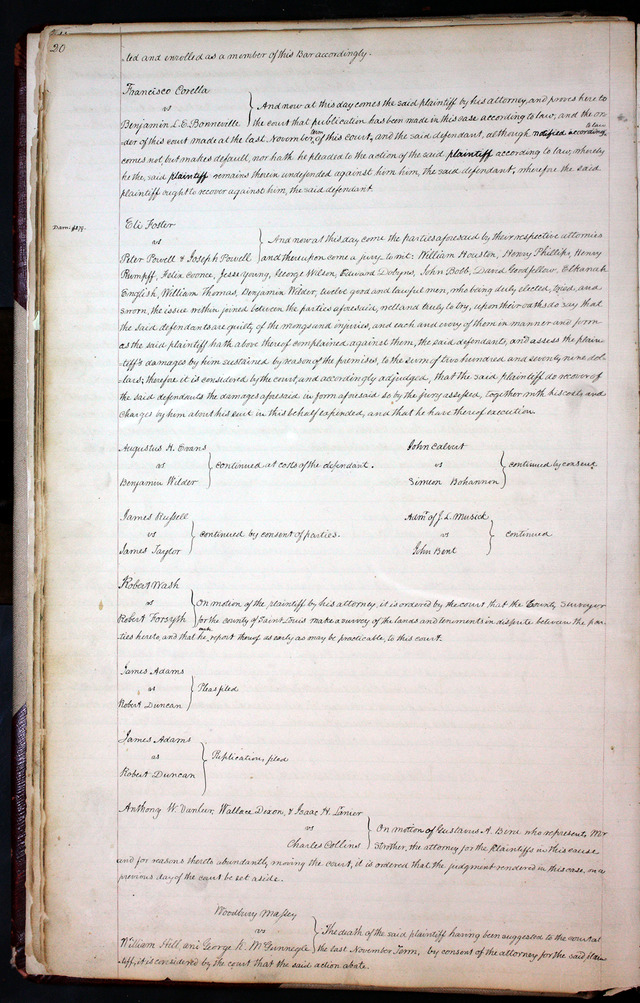 20
ted and enrolled as a member of this Bar accordingly.
Francisco Corella
vs
Benjamin L. E. Bonneville
And now at this day comes the said plaintiff by his attorney, and proves here to
the court that publication has been made in this case according to law, and the or-
der of this court made at the last November term of this court, and the said defendant, although notified according to law,
comes not, but makes default, nor hath he pleaded to the action of the said plaintiff according to law, whereby
he the said plaintiff remains therein undefended against him him, the said defendant, wherefore the said
plaintiff ought to recover against him, the said defendant
Dam: $279.
Eli Foster
vs
Peter Powell & Joseph Powell
And now at this day come the parties aforesaid by their respective attornies
and thereupon come a jury to wit: William Houston, Henry Phillips, Henry
Rumpff, Felix Coonce, Jesse Young, George Wilson, Edward Dobyns, John Bobb, David Goodfellow, Elkanah
English, William Thomas, Benjamin Wilder, twelve good and lawful men, who being duly elected, tried, and
sworn, the issue within joined between the parties aforesaid, well and truly to try, upon their oaths do say that
the said defendants are guilty of the wrongs and injuries, and each and every of them in manner and form
as the said plaintiff hath above thereof complained against them, the said defendants, and assess the plain-
tiff's damages by him sustained by reason of the premises, to the sum of two hundred and seventy nine dol-
lars; therefore it is considered by the court, and accordingly adjudged, that the said plaintiff do recover of
the said defendants the damages aforesaid in form aforesaid so by the jury assessed, together with his costs and
charges by him about his suit in this behalf expended, and that he have thereof execution
Augustus H. Evans
vs
Benjamin Wilder
continued at costs of the defendant.
John Calvert
vs
Simeon Bohannon
continued by consent
James Russell
vs
James Taylor
continued by consent of parties.
Admr. of J. L. Musick
vs
John Bent
continued
Robert Wash
vs
Robert Forsyth
On motion of the plaintiff by his attorney, it is ordered by the court that the County Surveyor
for the county of Saint Louis make a survey of the lands and tenements in dispute between the par-
ties hereto, and that he make report thereof as early as may be practicable, to this court.
James Adams
vs
Robert Duncan
Pleas filed
James Adams
vs
Robert Duncan
Replication, filed
Anthony W. Vanleer, Wallace Dixon, & Isaac H. Lanier
vs
Charles Collins
On motion of Gustavus A. Bird who represents Mr
Strother, the attorney for the Plaintiffs in this cause
and for reasons thereto abundantly moving the court, it is ordered that the judgment rendered in this case, on a
previous day of the court be set aside.
Woodbury Massey
vs
William Hill and George K. McGunnegle
The death of the said plaintiff having been suggested to the court at
the last November Term, by consent of the attorney for the said plain
tiff, it is considered by the court that the said action abate.